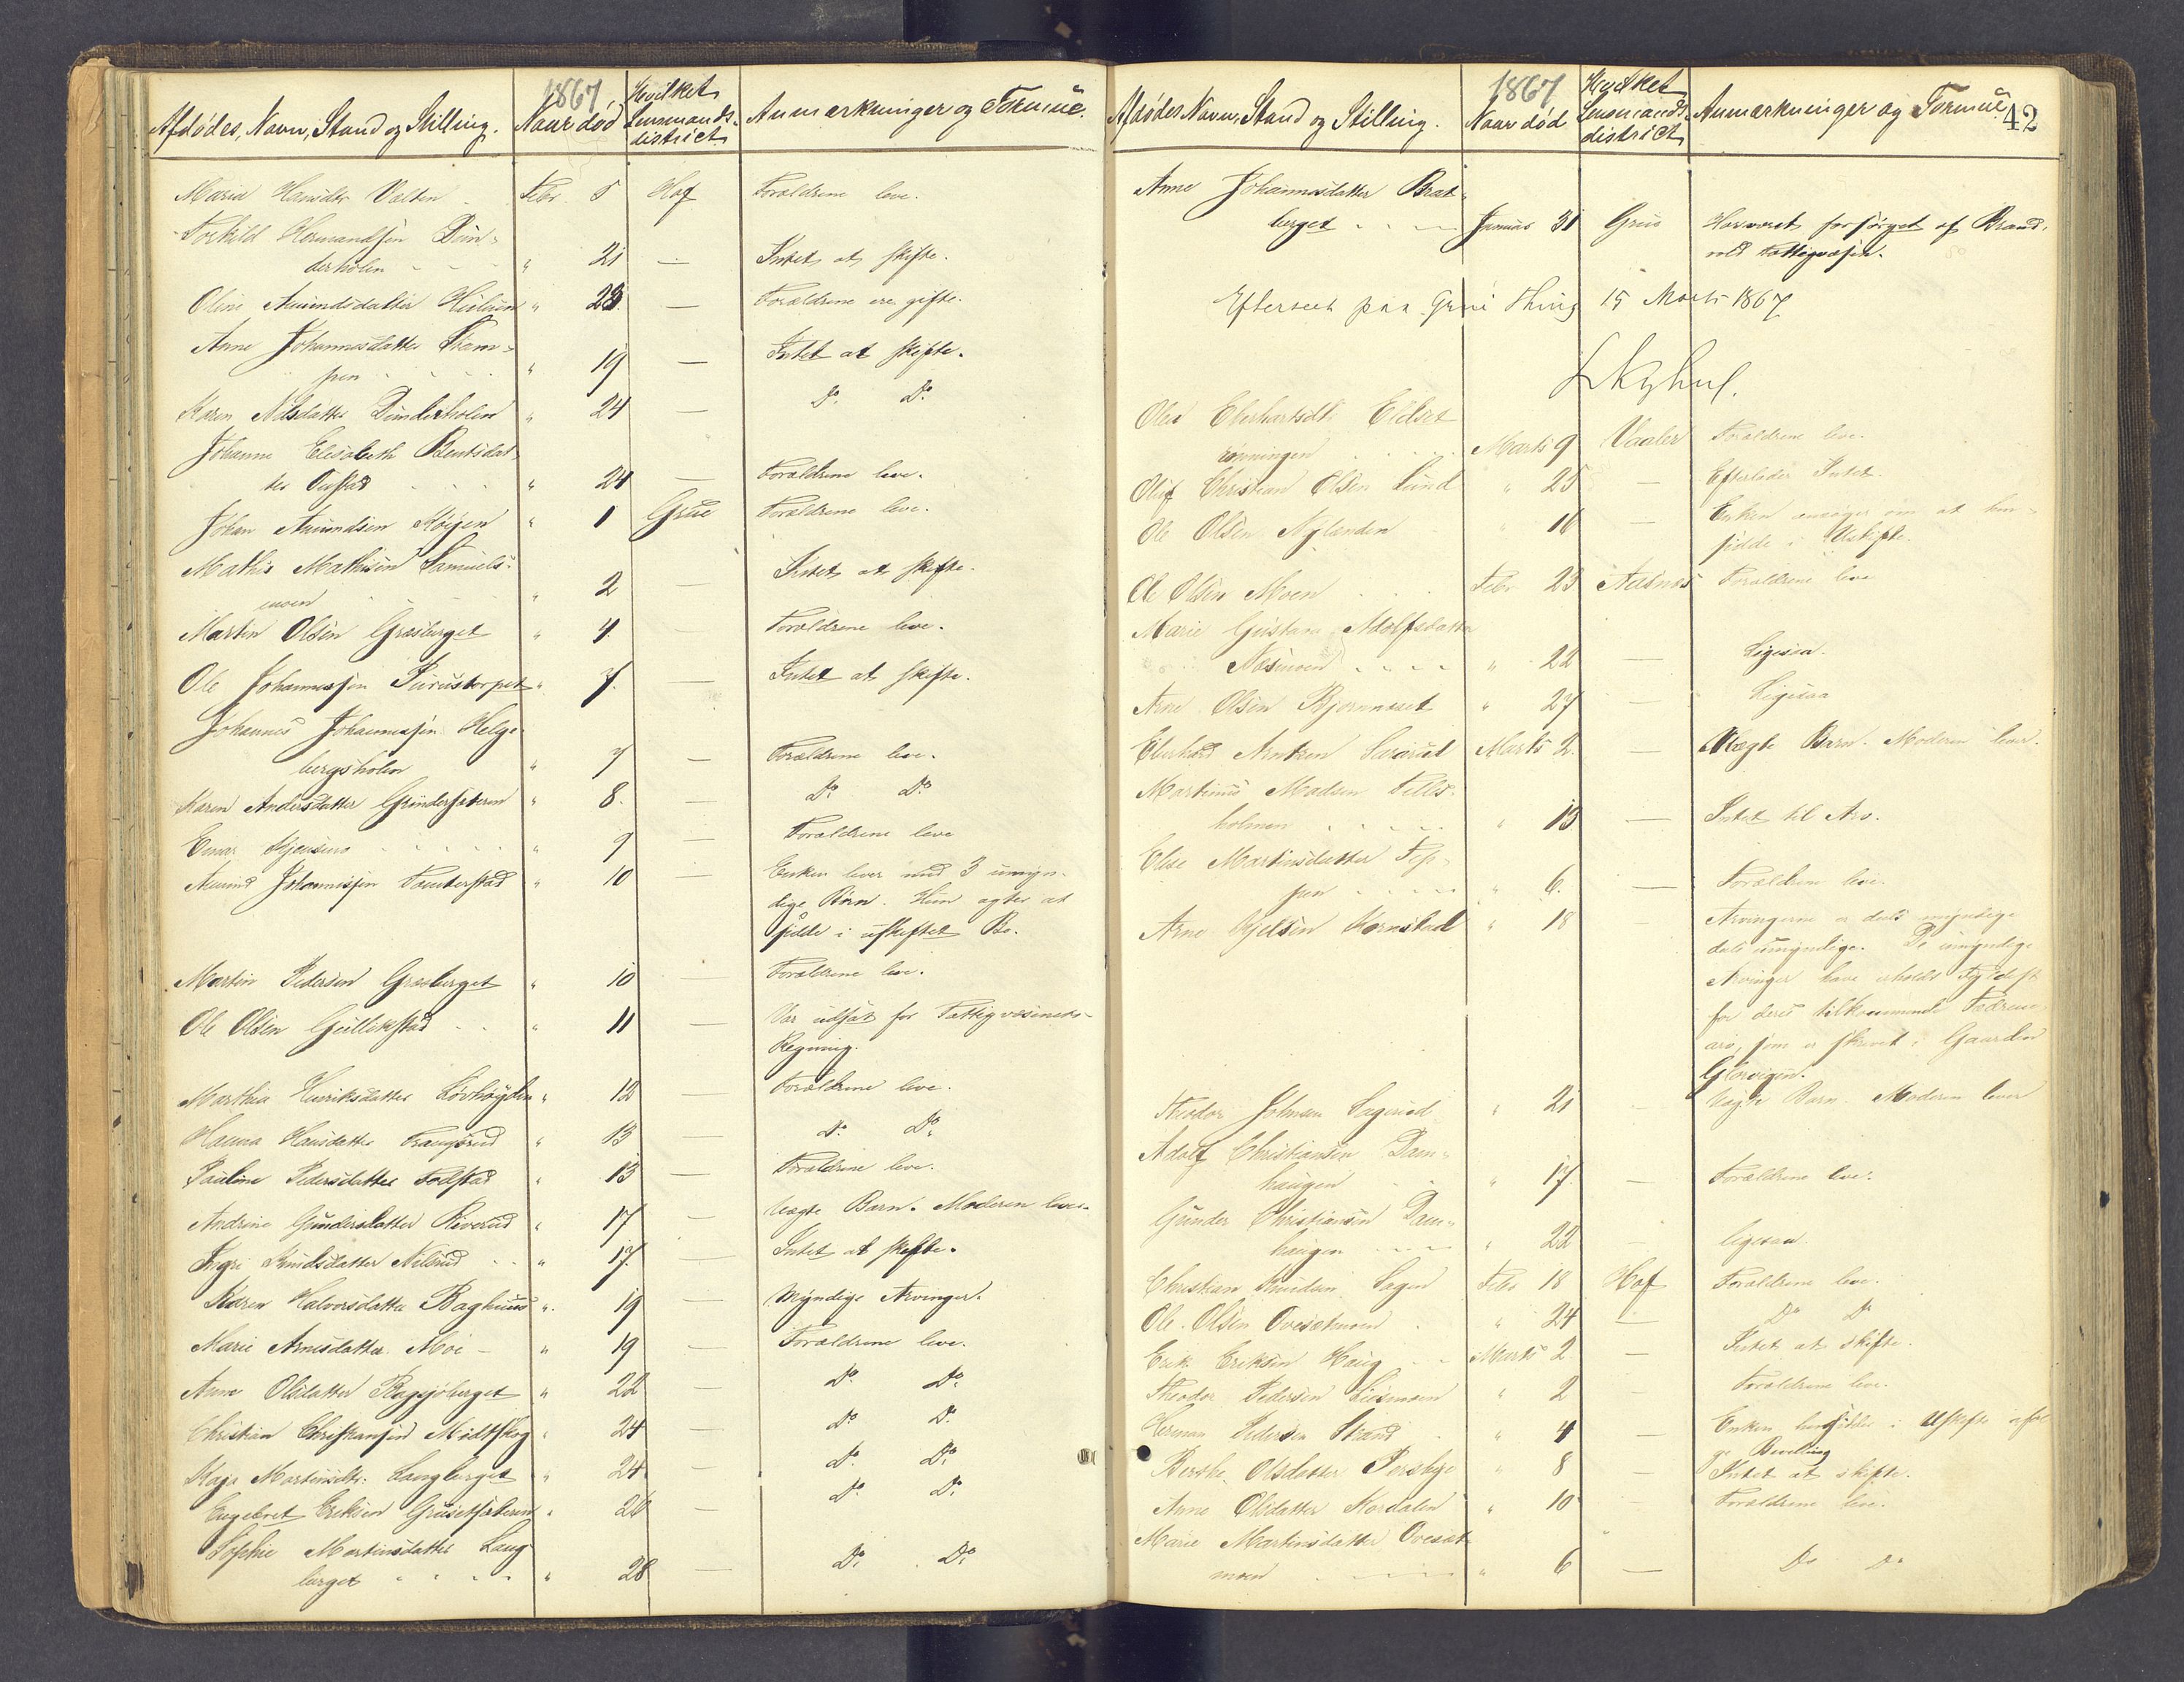 1867
Afdødes Navn, Stand og Stilling. Naar død Hvilket Lensmands-district Anmærkninger og Formue.
Maria Hansdtr Volten Febr. 5 Hof Forældrene leve.
Torkild Hermandsen Dun-
derholen " 21 — Intet at skifte.
Oline Amundsdatter " 23 — Forældrene ere gifte.
Anne Johannesdatter Stam-
pen " 19 — Intet at skifte.
Karen Nilsdatter Dunderholen " 24 — Do Do
Johanne Elisabeth Berntsdat-
ter " 24 — Forældrene leve.
Johan Amundsen " 1 Grue Forældrene leve.
Mathis Mathisen Samuels-
moen " 2 — Intet at skifte.
Martin Olsen Græsberget " 4 — Forældrene leve.
Ole Johannesen " 7 — Intet at skifte.
Johannes Johannesen Helge-
bergsholen " 7 — Forældrene leve.
Karen Andersdatter Grindersæteren " 8 — Do Do
Einar " 9 — Forældrene leve
Amund Johannesen " 10 — Enken lever med 3 umyn-
dige Børn. Hun agter at
sidde i uskiftet Bo.
Martin Pedersen Græsberget " 10 — Forældrene leve.
Ole Olsen Gullikstad " 11 — Var udsat for Fattigvæsinets
Regning.
Marthia Henriksdatter Løvhøyden " 12 — Forældrene leve.
Hanna Hansdatter " 13 — Do Do
Pauline Pedersdatter " 13 — Forældrene leve.
Andrine Gundersdatter " 17 — Uægte Barn. Moderen lever.
Ingri Knudsdatter Nilsrud " 17 — Intet at skifte.
Karen Halvorsdatter Baghuus " 19 — Myndige Arvinger.
Marie Arnesdatter Moe " 19 — Forældrene leve.
Anne Olsdatter Bagsjøberget " 22 — Do Do
Christian Christiansen Midtskog " 24 — Do Do
Kaja Martinsdtr. Langberget " 24 — Do Do
Engebret Eriksen Gruesætsæteren " 26 — Do Do
Sophie Martinsdatter Lang-
berget " 28 — Do Do
1867
42
Afdødes Navn, Stand og Stilling. Naar død Hvilket Lensmands-district Anmærkninger og Formue
Anne Johannesdatter Brat-
berget Januar 31 Grue Har været forsørget af Brand-
vold Fattigvæsen.
Efterseet paa Grue Thing 15 Marts 1867
Olea Eberhartsdtr Eidset-
rønningen Marts 9 Vaaler Forældrene leve.
Oluf Christian Olsen Lund " 25 — Efterlader Intet.
Ole Olsen Nylenden " 16 — Enken ansøger om at hen-
sidde i Uskifte.
Ole Olsen Moen Febr 23 Aasnes Forældrene leve
Marie Gustava Adolfsdatter
Næsmoen " 22 — Ligesaa.
Arne Olsen Bjørnnæset " 27 — Ligesaa
Eberhard Arntzen Marts 2 — Uægte Barn. Moderen lever.
Martinus Madsen
holmen " 13 — Intet til Arv.
Elise Martinsdatter Tep-
pen " 6. — Forældrene leve.
Arne Kjelsen Kornstad " 18 Arvingerne er dels myndige
dels umyndige. De umyndige
Arvinger have erholdt
for deres tilkommende Fædrene
arv, som er skrevet i Gaarden
Glorvigen.
Theodor Johnsen Sagerud " 21 — Uægte Barn. Moderen lever
Adolf Christiansen Dam-
haugen " 17. — Forældrene leve.
Gunder Christiansen Dam-
haugen " 22 — ligesaa.
Christian Knudsen Sagen Febr 18 Hof Forældrene leve.
Ole Olsen Ovesætmoen " 24 — Do Do
Erik Eriksen Haug Marts 2 — Intet at skifte.
Theodor Pedersen Liermoen " 2 — Forældrene leve.
Herman Pedersen Strand " 4 — Enken hensidder i Uskifte iføl
ge Bevilling
Berthe Olsdatter " 8 — Intet at skifte.
Anne Olsdatter Kordalen " 10 — Forældrene leve.
Marie Martinsdatter Ovesæt-
moen " 6 — Do Do